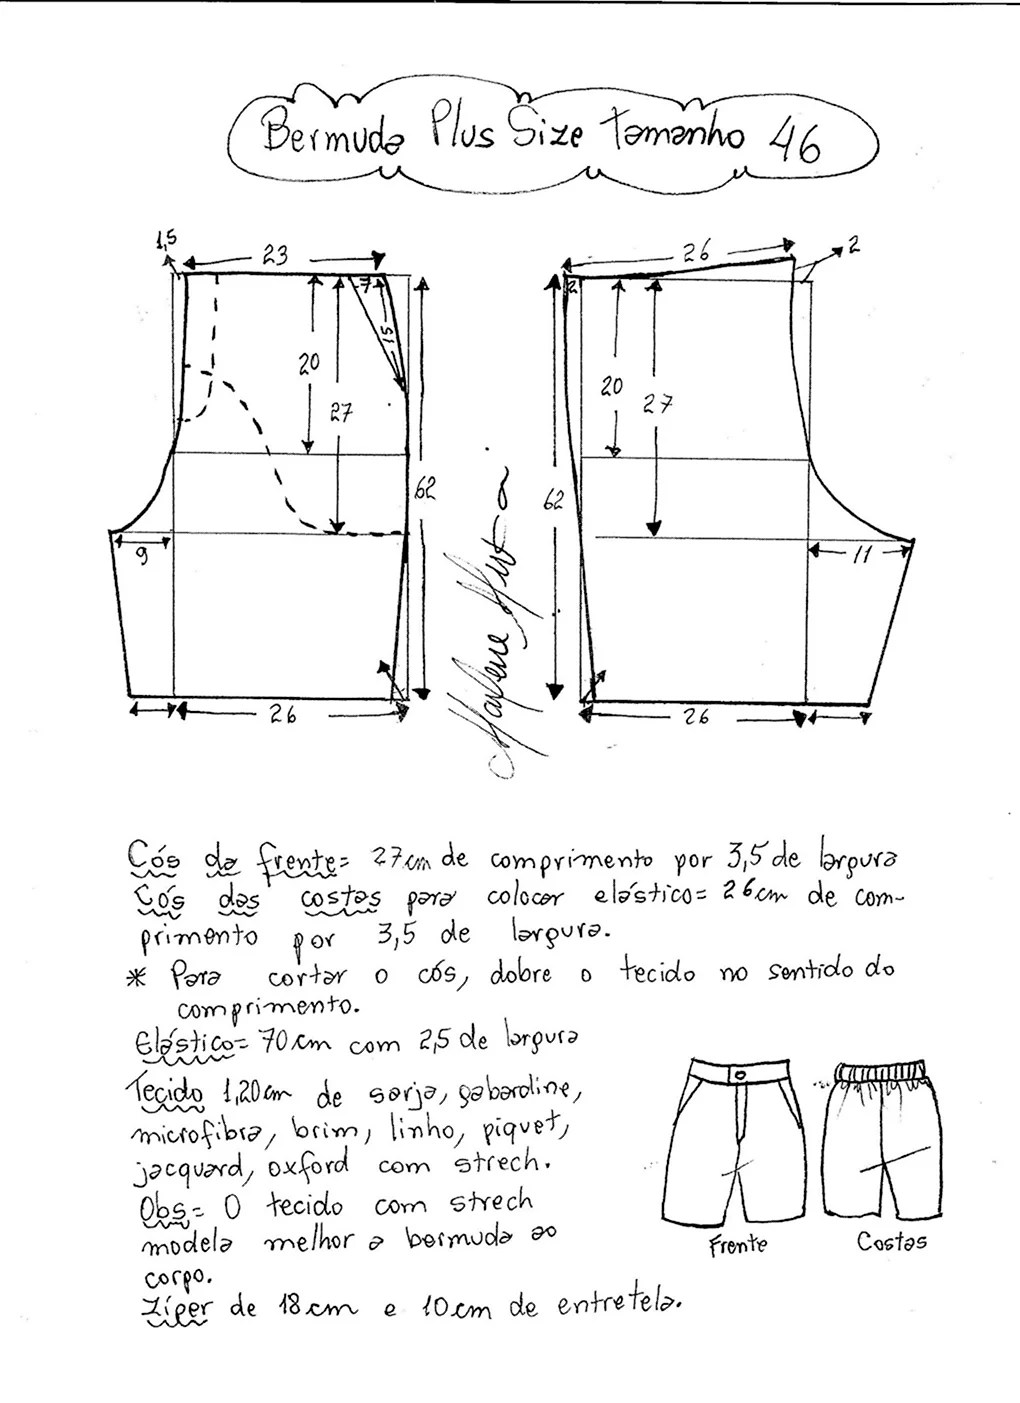 Bermuda Plus Size Tamanho 46
1,5
23
7
15
20
27
62
9
26
26
2
2
20
27
62
11
26
Marlene Mukai
Cós da frente= 27cm de comprimento por 3,5 de largura
Cós das costas para colocar elástico= 26cm de com-
primento por 3,5 de largura.
* Para cortar o cós, dobre o tecido no sentido do
comprimento.
Elástico= 70cm com 2,5 de largura
Tecido 1,20cm de sarja, gabardine,
microfibra, brim, linho, piquet,
jacquard, oxford com strech.
Obs= O tecido com strech
modela melhor a bermuda ao
corpo.
Zíper de 18cm e 10cm de entretela.
Frente
Costas